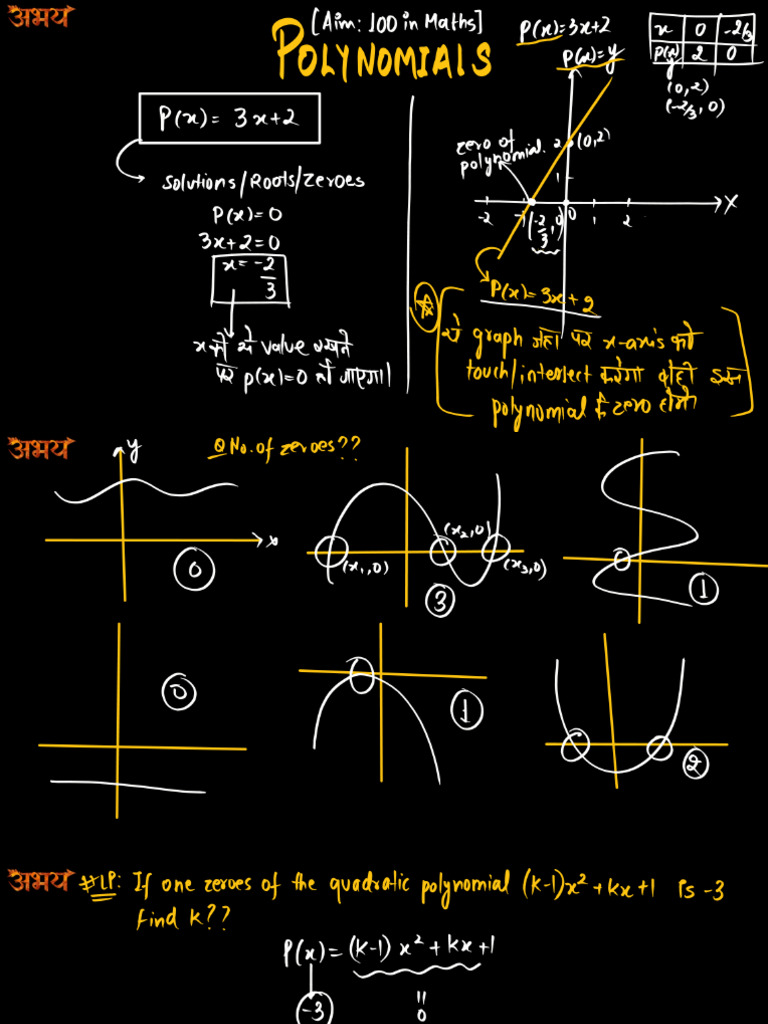 अभय
[Aim: 100 in Maths]
POLYNOMIALS
P(x) = 3x+2
Solutions/Roots/Zeroes
P(x)=0
3x+2=0
x = -2/3
x की ये value रखने
पर p(x)=0 हो जाएगा।
P(x)=3x+2
P(x)=y
x 0 -2/3
P(x) 2 0
y
(0,2)
(-2/3, 0)
zero of
polynomial.
2 (0,2)
1
-2 -1 0 1 2 X
(-2/3, 0)
P(x)=3x+2
ये graph जहा पर x-axis को
touch/intersect करेगा वोही इस
polynomial के zero होंगे
अभय
Q No. of zeroes??
y
x
0
(x1,0)
(x2,0)
(x3,0)
3
1
0
1
2
अभय
#LP: If one zeroes of the quadratic polynomial (k-1)x² + kx + 1 is -3
find k??
P(x) = (k-1) x² + kx + 1
-3
"
0